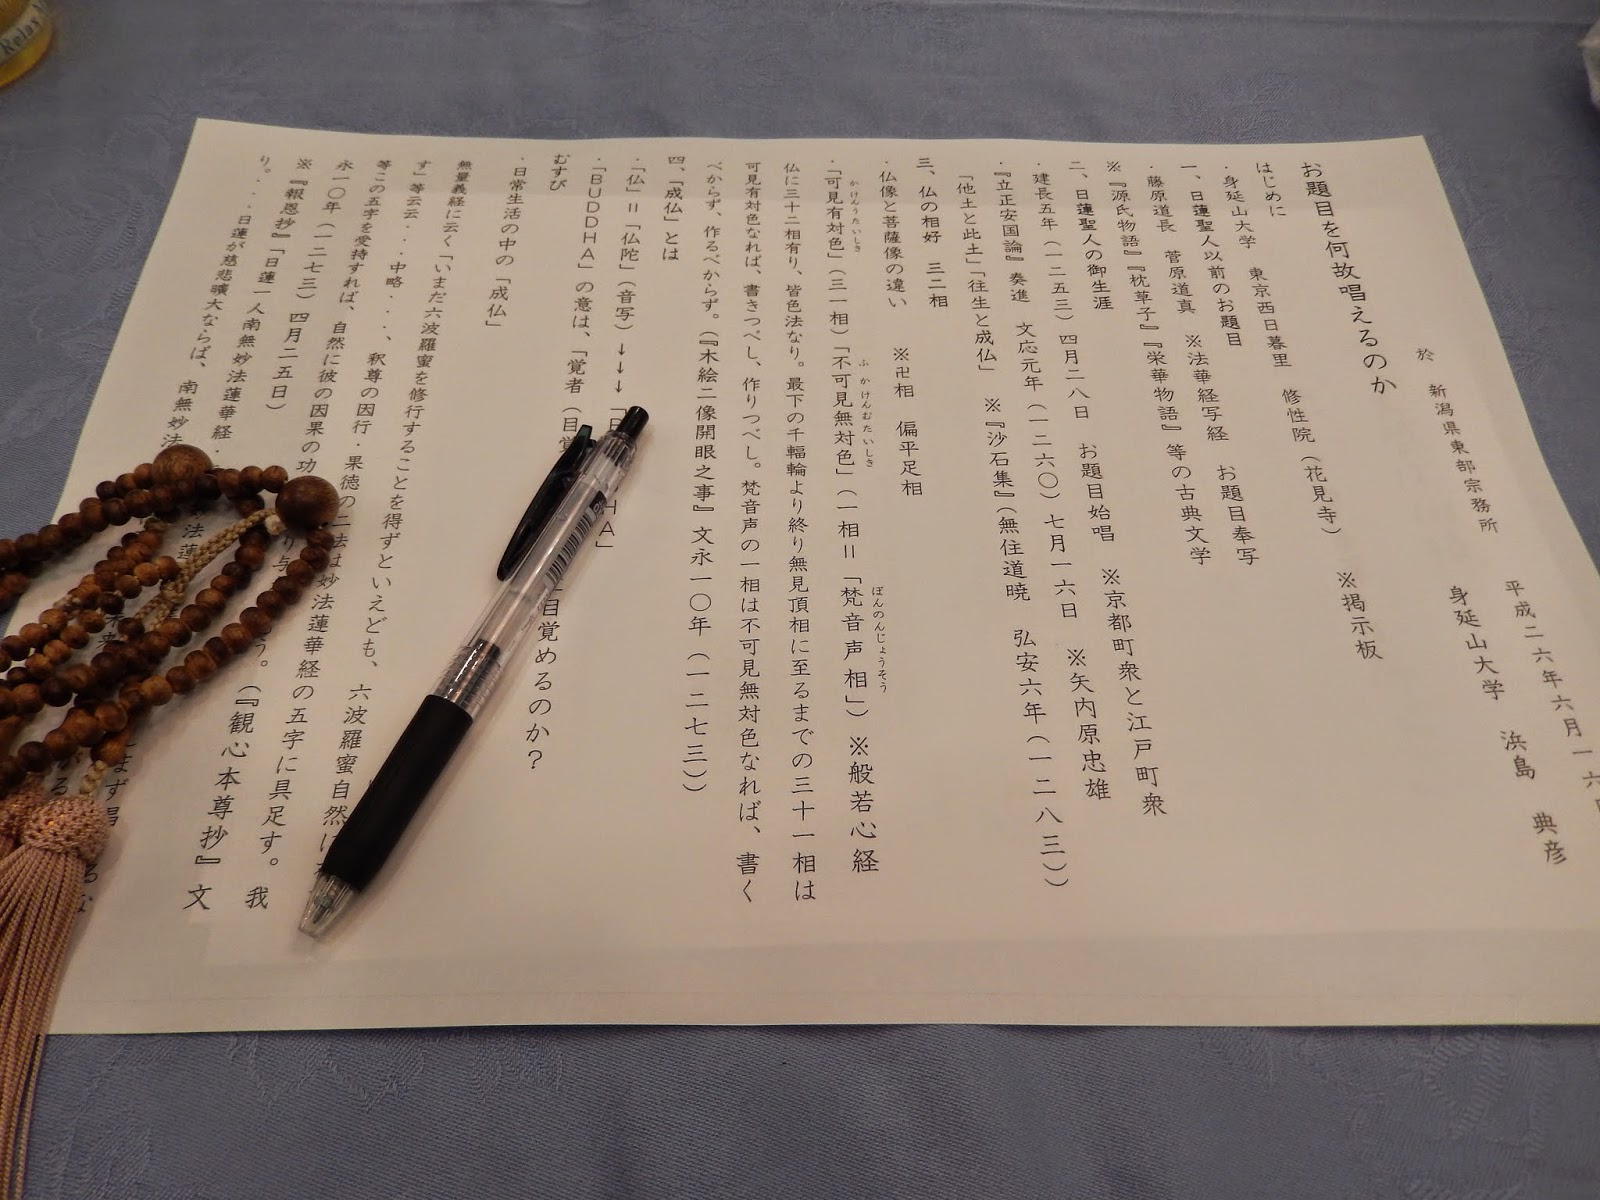 平成二六年六月一六
於 新潟県東部宗務所
身延山大学 浜島 典彦
お題目を何故唱えるのか ※掲示板
はじめに
・身延山大学 東京西日暮里 修性院(花見寺)
一、日蓮聖人以前のお題目
・藤原道長 菅原道真 ※法華経写経 お題目奉写
※『源氏物語』『枕草子』『栄華物語』等の古典文学
二、日蓮聖人の御生涯
・建長五年(一二五三)四月二八日 お題目始唱 ※京都町衆と江戸町衆
・『立正安国論』奏進 文応元年(一二六〇)七月一六日 ※矢内原忠雄
「他土と此土」「往生と成仏」 ※『沙石集』(無住道暁 弘安六年(一二八三)
三、仏の相好 三二相
・仏像と菩薩像の違い ※卍相 偏平足相
かけんうたいしき ふかけんむたいしき ぼんのんじょうそう
・「可見有対色」(三一相)「不可見無対色」(一相=「梵音声相」)※般若心経
仏に三十二相有り、皆色法なり。最下の千輻輪より終り無見頂相に至るまでの三十一相は
可見有対色なれば、書きつべし、作りつべし。梵音声の一相は不可見無対色なれば、書く
べからず、作るべからず。(『木絵二像開眼之事』文永一〇年(一二七三)
四、「成仏」とは
・「仏」=「仏陀」(音写)→→→「 HA」
・「BUDDHA」の意は、「覚者(目覚 目覚めるのか?
むすび
・日常生活の中の「成仏」
無量義経に云く「いまだ六波羅蜜を修行することを得ずといえども、六波羅蜜自然に
す」等云云・・・中略・・・、釈尊の因行・果徳の二法は妙法蓮華経の五字に具足す。我
等この五字を受持すれば、自然に彼の因果の功 う。(『観心本尊抄』文
永一〇年(一二七三)四月二五日)
※『報恩抄』「日蓮一人南無妙法蓮華経・ まず
り。・・・日蓮が慈悲曠大ならば、南無妙法
Relax